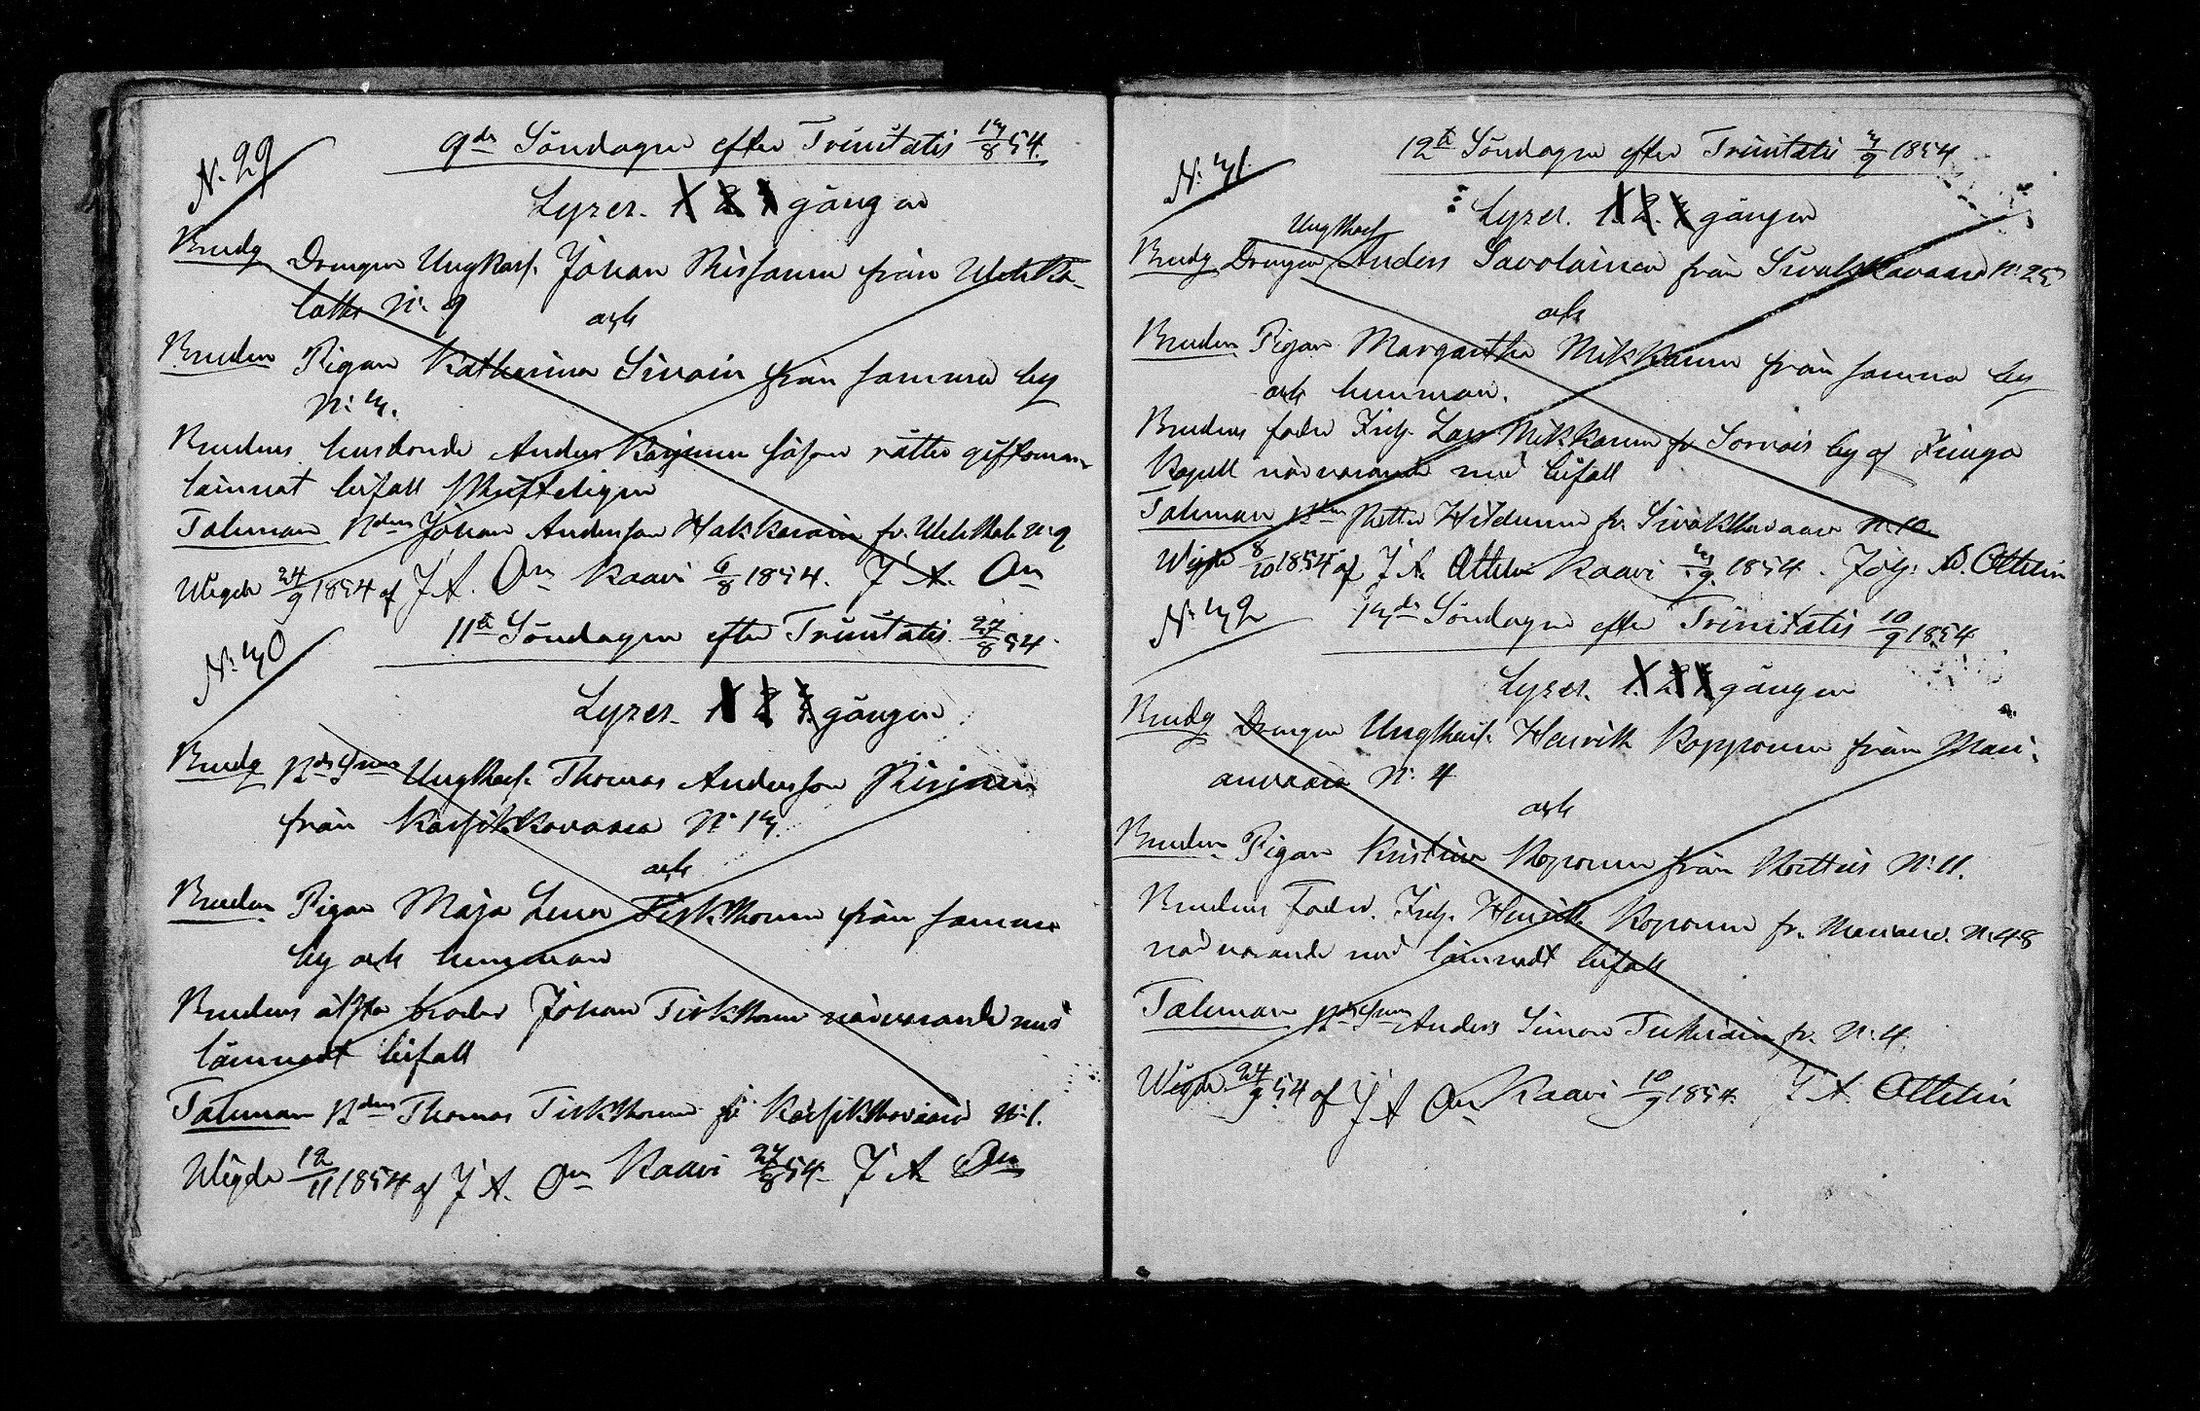 N. 29
9de Söndagen efter Trinitatis 13/8 54.
Lyses. 1 2 3 gången
Brudg Drengen Ungkarl. Johan Rissanen från
N: 9
och
Bruden Pigan Katharina från samma by
N: 3.
Brudens husbonde Anders såsom rätter giftoman
lämnat bifall skrifteligen
Talman Johan Andersson Hakkarain fr. N: 9
Wigde 24/9 1854 af J A. On Kaavi 6/8 1854. J A. On
N: 30
11te Söndagen efter Trinitatis 27/8 54.
Lyses. 1 2 3 gången
Brudg Ungkarl. Thomas Andersson
från Karsikkovaara N: 13.
och
Bruden Pigan Maja Lena Tirkkonen från samma
by och hemman
Brudens älsta broder Johan Tirkkonen närvarande med
lämnadt bifall
Talman Thomas Tirkkonen fr Karsikkovaara N: 1.
Wigde 12/11 1854 af J A. On Kaavi 27/8 54. J A On
N: 31
12te Söndagen efter Trinitatis 3/9 1854
Lyses. 1. 2. 3 gången
Ungkarl
Brudg Drengen Anders Savolainen från Sivakkavaara N: 25
och
Bruden Pigan Margaretha Mikkanen från samma by
och hemman.
Brudens fader Inh. Lars Mikkanen fr by af Juuga
Kapell närvarande med bifall
Talman Petter fr Sivakkavaara N: 12
Wigde 8/10 1854 af J A. Ottelin Kaavi 3/9. 1854. Joh. A. Ottelin
N: 32
13de Söndagen efter Trinitatis 10/9 1854
Lyses. 1. 2. 3 gången
Brudg Drengen Ungkarl. Henrik Kopponen från Mari-
anvaara N: 4
och
Bruden Pigan Kristina Koponen från N: 11.
Brudens Fader. Inh. Henrik Koponen fr. N: 48
närvarande med lämnadt bifall
Talman Anders Simon fr. N: 4.
Wigde 24/9 54 af J A On Kaavi 10/9 1854. J A Ottelin